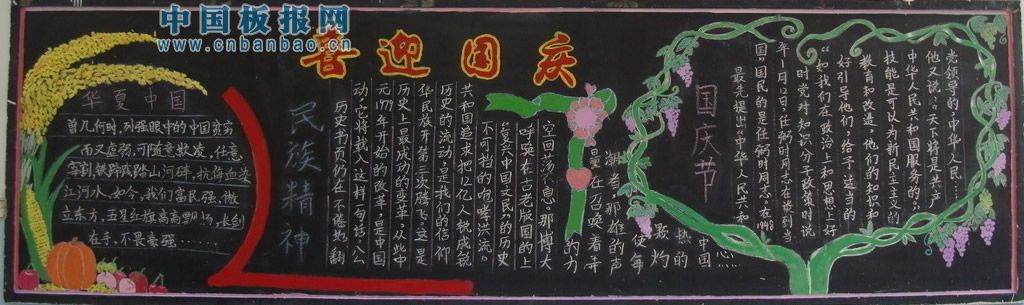 中国板报网
www.cnbanbao.cn
喜迎国庆
华夏中国
曾几何时,列强眼中的中国贫穷
而又虚弱,可随意欺凌,任意
宰割,铁蹄践踏山河碎,抗倭血染
江河水。如今,我们富民强,傲
立东方,五星红旗高高飘扬,水剑
在手,不畏豪强……
民族精神
历史书页仍在不感地翻
动,它将载入这样一句话:“从
元1979年开始的改革,是中国
历史上最成功的变革,从此中
华民族开第三次腾飞。”这是
历史的流动,是我们的信仰
共和国追求把12亿人铣成锐
不可挡的咆哮洪流。
复兴中国文民的的历史
呼唤在古老版国的上
空回荡,不息,那博大
的力量在召唤着寻
潮卷那雄的声
使每
灼
热的
中国
心…
国庆节
最先提出“中华人民共和
国”国民的是任弼时同志。在1948
年1月12日,任弼时同志在谈到当
时党对知识分子政策时说
“如我们在政治上和思想上好
好引导他们,给予适当的
教育和改进,他们的知识和
技能是可以为新民主主义的
中华人民共和国服务的。”
他又说:“天下将是共产
党领导的中华人民…